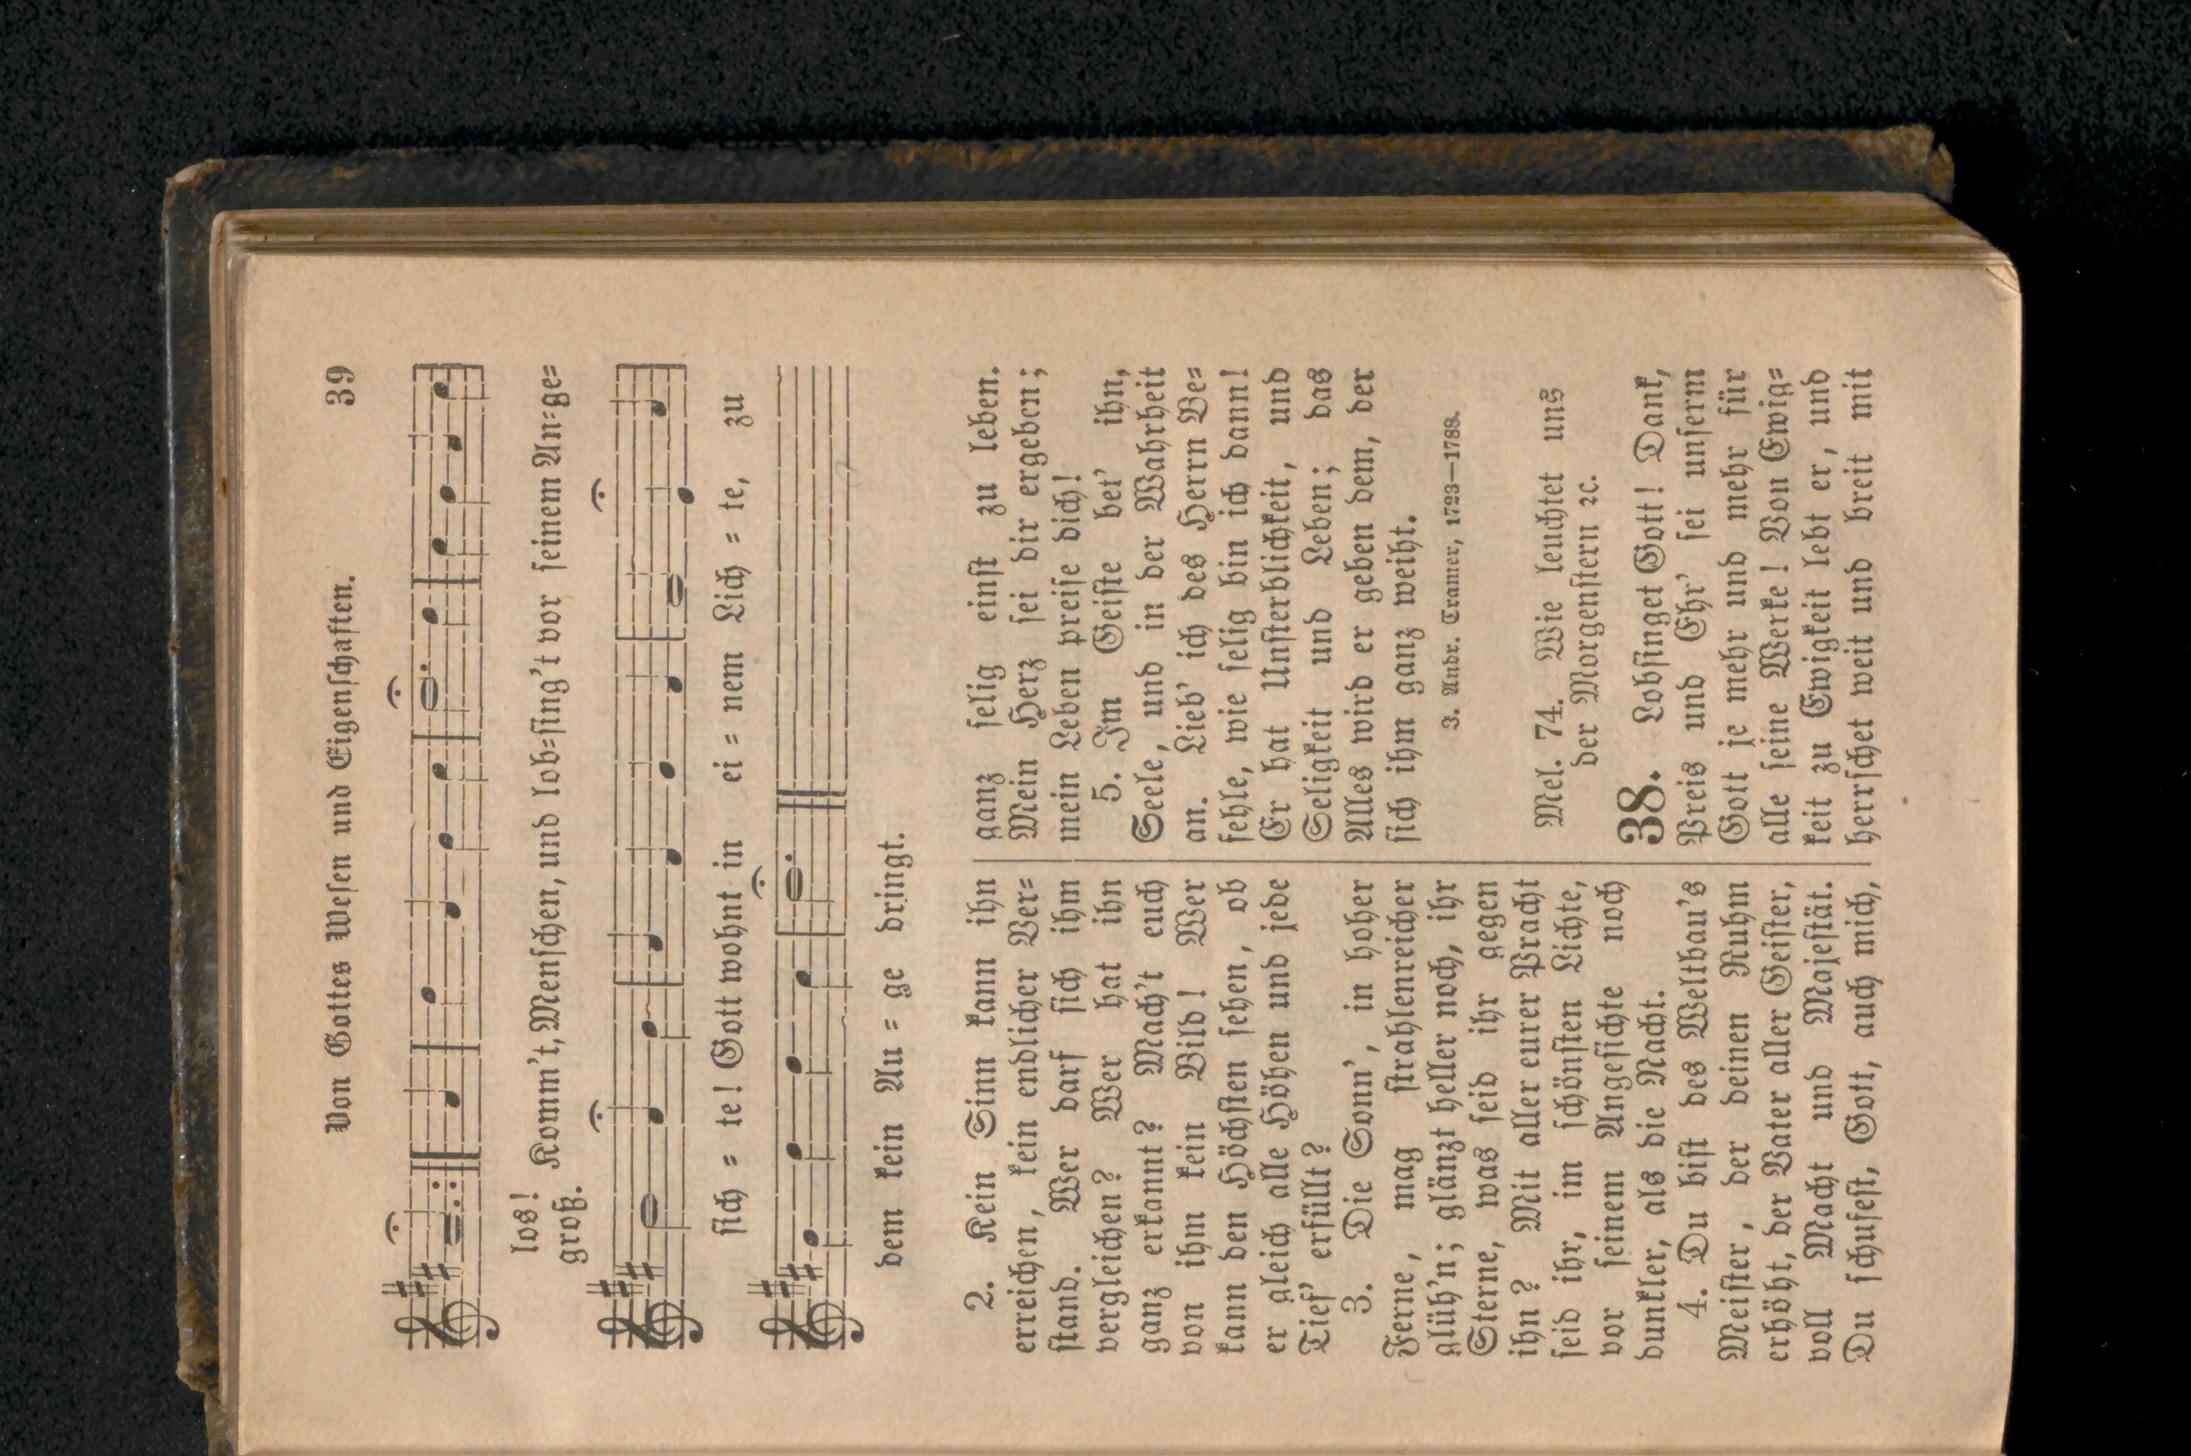 Von Gottes Wesen und Eigenschaften. 39
los! Komm't, Menschen, und lob=sing't vor seinem An=ge=
groß.
sich = te! Gott wohnt in ei = nem Lich = te, zu
dem kein Au = ge dringt.
2. Kein Sinn kann ihn
erreichen, kein endlicher Ver=
stand. Wer darf sich ihm
vergleichen? Wer hat ihn
ganz erkannt? Mach't euch
von ihm kein Bild! Wer
kann den Höchsten sehen, ob
er gleich alle Höhen und jede
Tief' erfüllt?
3. Die Sonn', in hoher
Ferne, mag strahlenreicher
glüh'n; glänzt heller noch, ihr
Sterne, was seid ihr gegen
ihn? Mit aller eurer Pracht
seid ihr, im schönsten Lichte,
vor seinem Angesichte noch
dunkler, als die Nacht.
4. Du bist des Weltbau's
Meister, der deinen Ruhm
erhöht, der Vater aller Geister,
voll Macht und Majestät.
Du schufest, Gott, auch mich,
ganz selig einst zu leben.
Mein Herz sei dir ergeben;
mein Leben preise dich!
5. Im Geiste bet' ihn,
Seele, und in der Wahrheit
an. Lieb' ich des Herrn Be=
fehle, wie selig bin ich dann!
Er hat Unsterblichkeit, und
Seligkeit und Leben; das
Alles wird er geben dem, der
sich ihm ganz weiht.
J. Andr. Cramer, 1723—1788.
Mel. 74. Wie leuchtet uns
der Morgenstern ꝛc.
38. Lobsinget Gott! Dank,
Preis und Ehr' sei unserm
Gott je mehr und mehr für
alle seine Werke! Von Ewig=
keit zu Ewigkeit lebt er, und
herrschet weit und breit mit